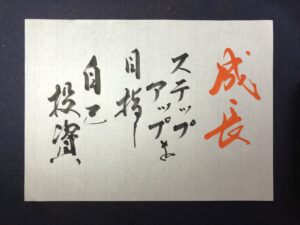 成長
ステップ
アップを
目指し
自己
投資